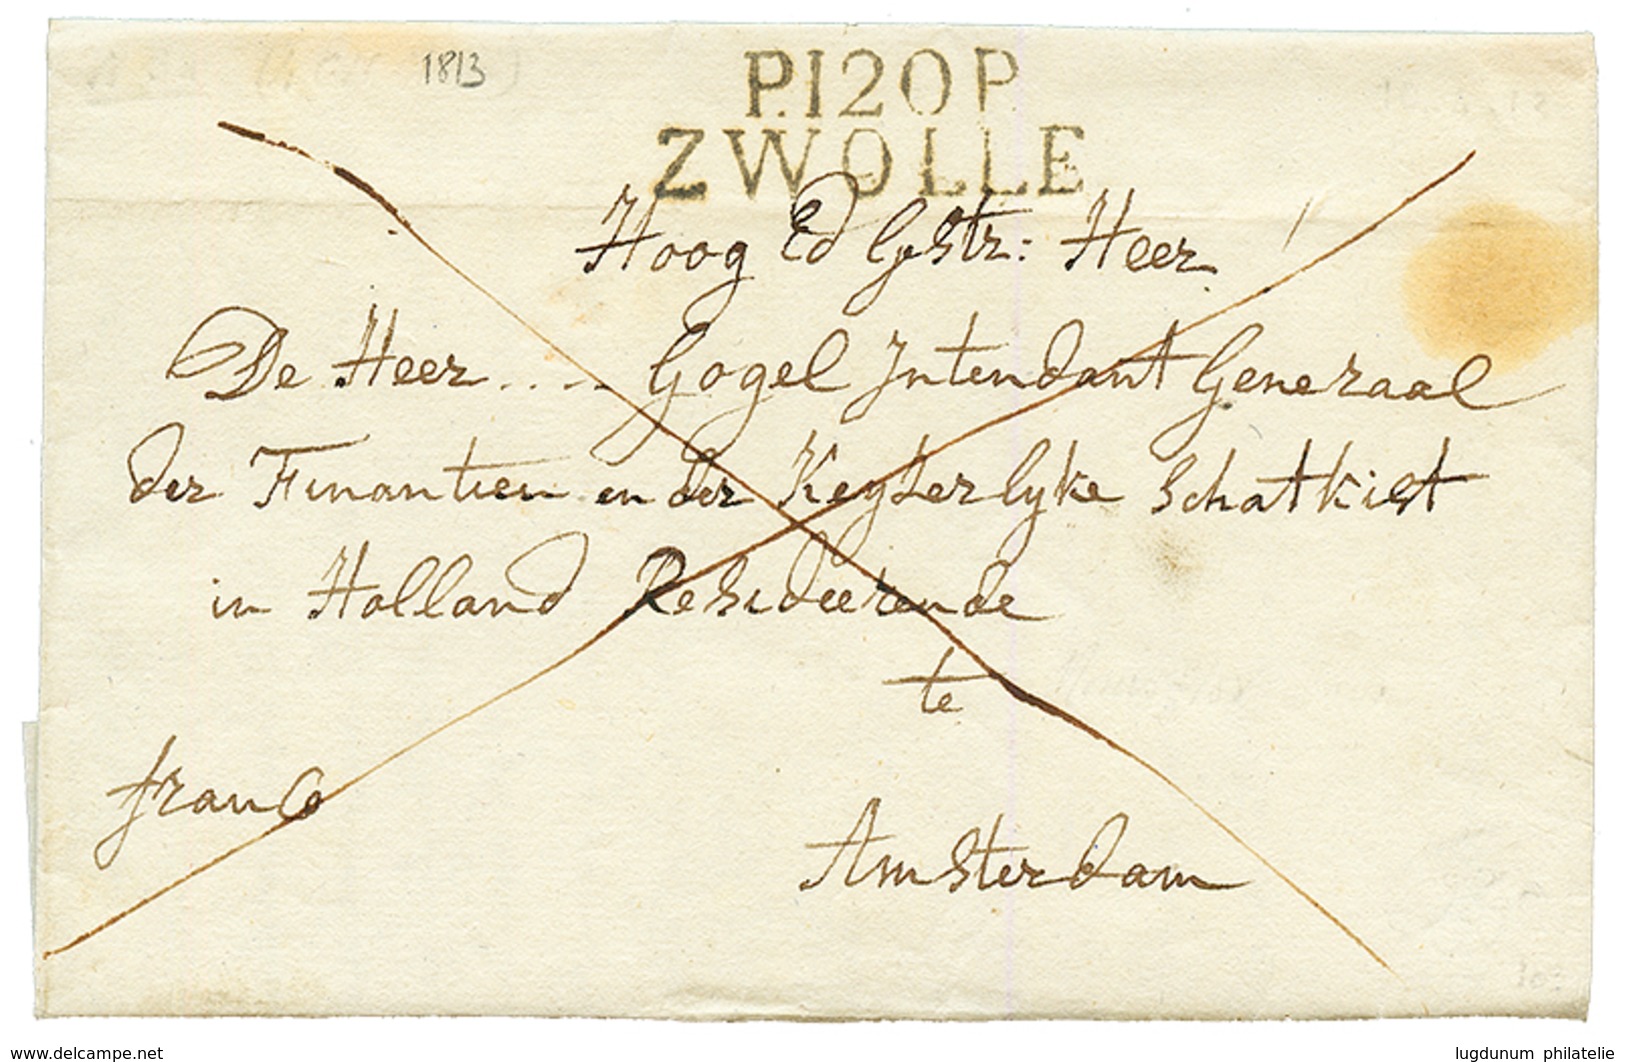 1813
P.120P.
ZWOLLE
Hoog Ed Gestr: Heer
De Heer .... Gogel Intendant Generaal
der Finantien en der Keyserlyke Schatkist
in Holland Resideerende
te
franco
Amsterdam
www.delcampe.net
lugdunum philatelie